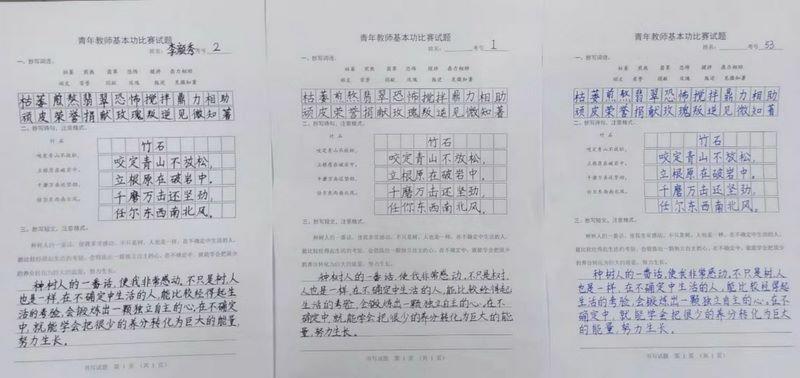 青年教师基本功比赛试题
姓名：李凝秀考号 2
一、抄写词语。
枯萎 煎熬 翡翠 恐怖 搅拌 鼎力相助
顽皮 荣誉 捐献 玫瑰 叛逆 见微知著
枯萎煎熬翡翠恐怖搅拌鼎力相助
顽皮荣誉捐献玫瑰叛逆见微知著
二、抄写诗句，注意格式。
竹石
咬定青山不放松，
立根原在破岩中。
千磨万击还坚劲，
任尔东西南北风。
竹石
咬定青山不放松，
立根原在破岩中。
千磨万击还坚劲，
任尔东西南北风。
三、抄写短文，注意格式。
种树人的一番话，使我非常感动，不只是树人，人也是一样，在不确定中生活的人，
能比较经得起生活的考验，会锻炼出一颗独立自主的心。在不确定中，就能学会把很少
的养分转化为巨大的能量，努力生长。
种树人的一番话，使我非常感动，不只是树人
也是一样，在不确定中生活的人，能比较经得起生
活的考验，会锻炼出一颗独立自主的心，在不确定
中，就能学会把很少的养分转化为巨大的能量，
努力生长。
书写试题 第 1 页 （共 1 页）
青年教师基本功比赛试题
姓名：考号 1
一、抄写词语。
枯萎 煎熬 翡翠 恐怖 搅拌 鼎力相助
顽皮 荣誉 捐献 玫瑰 叛逆 见微知著
枯萎煎熬翡翠恐怖搅拌鼎力相助
顽皮荣誉捐献玫瑰叛逆见微知著
二、抄写诗句，注意格式。
竹石
咬定青山不放松，
立根原在破岩中。
千磨万击还坚劲，
任尔东西南北风。
竹石
咬定青山不放松，
立根原在破岩中。
千磨万击还坚劲，
任你东西南北风。
三、抄写短文，注意格式。
种树人的一番话，使我非常感动，不只是树，人也是一样，在不确定中生活的人，
能比较经得起生活的考验，会锻炼出一颗独立自主的心。在不确定中，就能学会把很少
的养分转化为巨大的能量，努力生长。
种树人的一番话，使我非常感动，不只是树，
人也是一样，在不确定中生活的人，能比较经得起生
活的考验，会锻炼出一颗独立自主的心。在不确定
中，就能学会把很少的养分转化为巨大的能
量，努力生长。
书写试题 第 1 页 （共 1 页）
青年教师基本功比赛试题
姓名：考号 53
一、抄写词语。
枯萎 煎熬 翡翠 恐怖 搅拌 鼎力相助
顽皮 荣誉 捐献 玫瑰 叛逆 见微知著
枯萎煎熬翡翠恐怖搅拌鼎力相助
顽皮荣誉捐献玫瑰叛逆见微知著
二、抄写诗句，注意格式。
竹石
咬定青山不放松，
立根原在破岩中。
千磨万击还坚劲，
任尔东西南北风。
竹石
咬定青山不放松，
立根原在破岩中。
千磨万击还坚劲，
任尔东西南北风。
三、抄写短文，注意格式。
种树人的一番话，使我非常感动，不只是树，人也是一样，在不确定中生活的人，
能比较经得起生活的考验，会锻炼出一颗独立自主的心。在不确定中，就能学会把很少
的养分转化为巨大的能量，努力生长。
种树人的一番话，使我非常感动，不只是树，人
也是一样，在不确定中生活的人，能比较经得起
生活的考验，会锻炼出一颗独立自主的心，在不确
定中，就能学会把很少的养分转化为巨大
的能量，努力生长。
书写试题 第 1 页 （共 1 页）